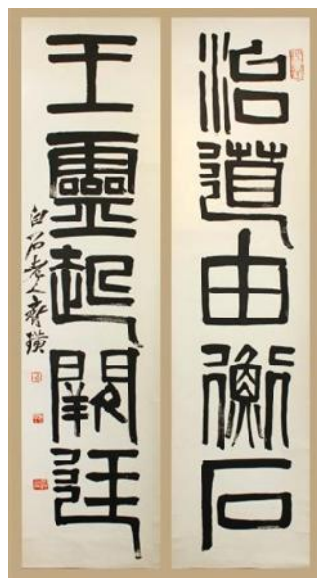 治道由衡石
王靈起闕廷
白石老人齊璜